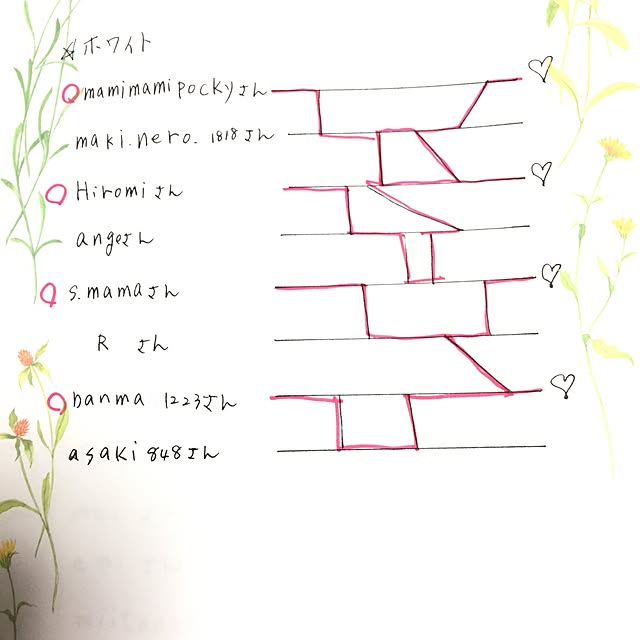 ☆ホワイト
mamimamipockyさん
maki.nero.1818さん
Hiromiさん
angeさん
s.mamaさん
R さん
banma 1223さん
asaki848さん